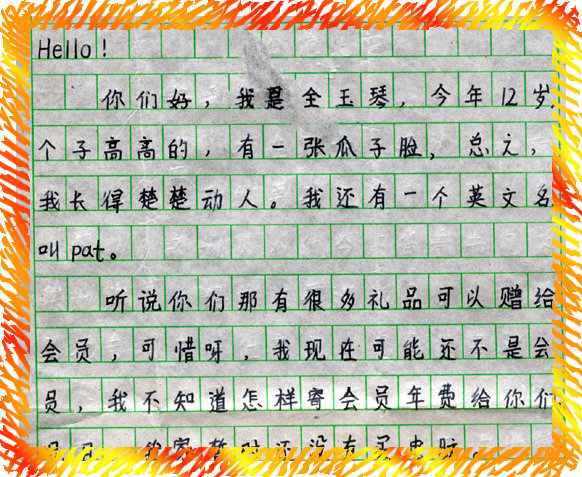 Hello!
你们好，我是全玉琴，今年12岁，
个子高高的，有一张瓜子脸，总之，
我长得楚楚动人。我还有一个英文名
叫pat。
听说你们那有很多礼品可以赠给
会员，可惜呀，我现在可能还不是会
员，我不知道怎样寄会员年费给你们
我家暂时还没有买电脑